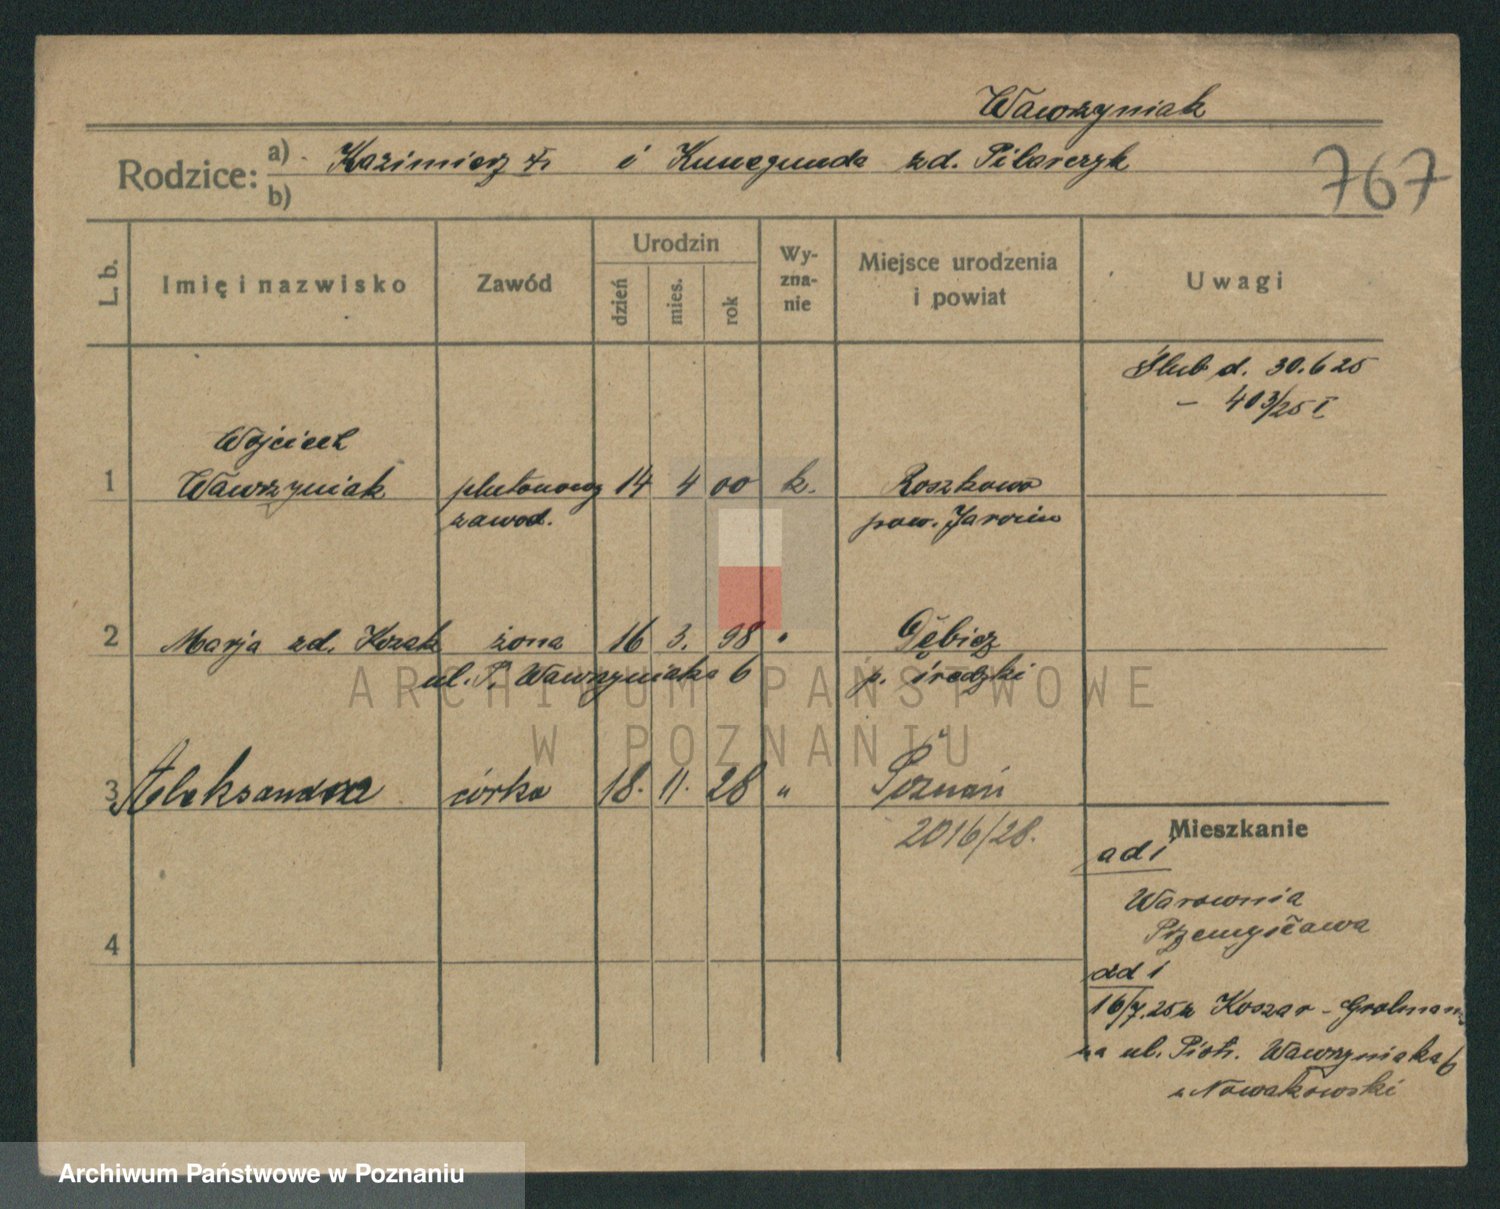 Wawrzyniak
Rodzice: a) Kazimierz i Kunegunda zd. Pilarczyk
b)
767
L. b.
Imię i nazwisko
Zawód
Urodzin
dzień
mies.
rok
Wy-
zna-
nie
Miejsce urodzenia
i powiat
Uwagi
Ślub d. 30.6 25
– 403/25 I
1
Wojciech
Wawrzyniak plutonowy 14 4 00 k. Roszkowo
zawod. pow. Jarocin
2 Marja zd. Kozak żona 16 3. 98 " Gębicz
ul. P. Wawrzyniaka 6 p. średzki
3 Aleksandra córka 18. 11. 28 " Poznań
2016/28.
4
Mieszkanie
ad 1
Warownia
Przemysława
ad 1
16/7.25 z Koszar - Grolman
na ul. Piotr. Wawrzyniaka 6
u Nowakowski
ARCHIWUM PAŃSTWOWE
W POZNANIU
Archiwum Państwowe w Poznaniu